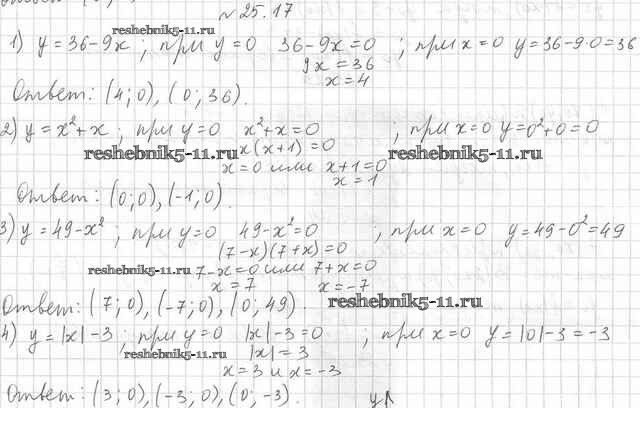 №25.17
reshebnik5-11.ru
1) y=36-9x ; при y=0 36-9x=0 ; при x=0 y=36-9·0=36
9x=36
x=4
Ответ: (4;0), (0;36).
2) y=x²+x ; при y=0 x²+x=0 ; при x=0 y=0²+0=0
reshebnik5-11.ru x(x+1)=0 reshebnik5-11.ru
x=0 или x+1=0
x=1
Ответ: (0;0),(-1;0).
3) y=49-x² ; при y=0 49-x²=0 ; при x=0 y=49-0²=49
(7-x)(7+x)=0
reshebnik5-11.ru 7-x=0 или 7+x=0
x=7 x=-7
Ответ: (7;0), (-7;0), (0;49). reshebnik5-11.ru
4) y=|x|-3 ; при y=0 |x|-3=0 ; при x=0 y=|0|-3=-3
reshebnik5-11.ru |x|=3
x=3 и x=-3
Ответ: (3;0), (-3;0), (0;-3).
y